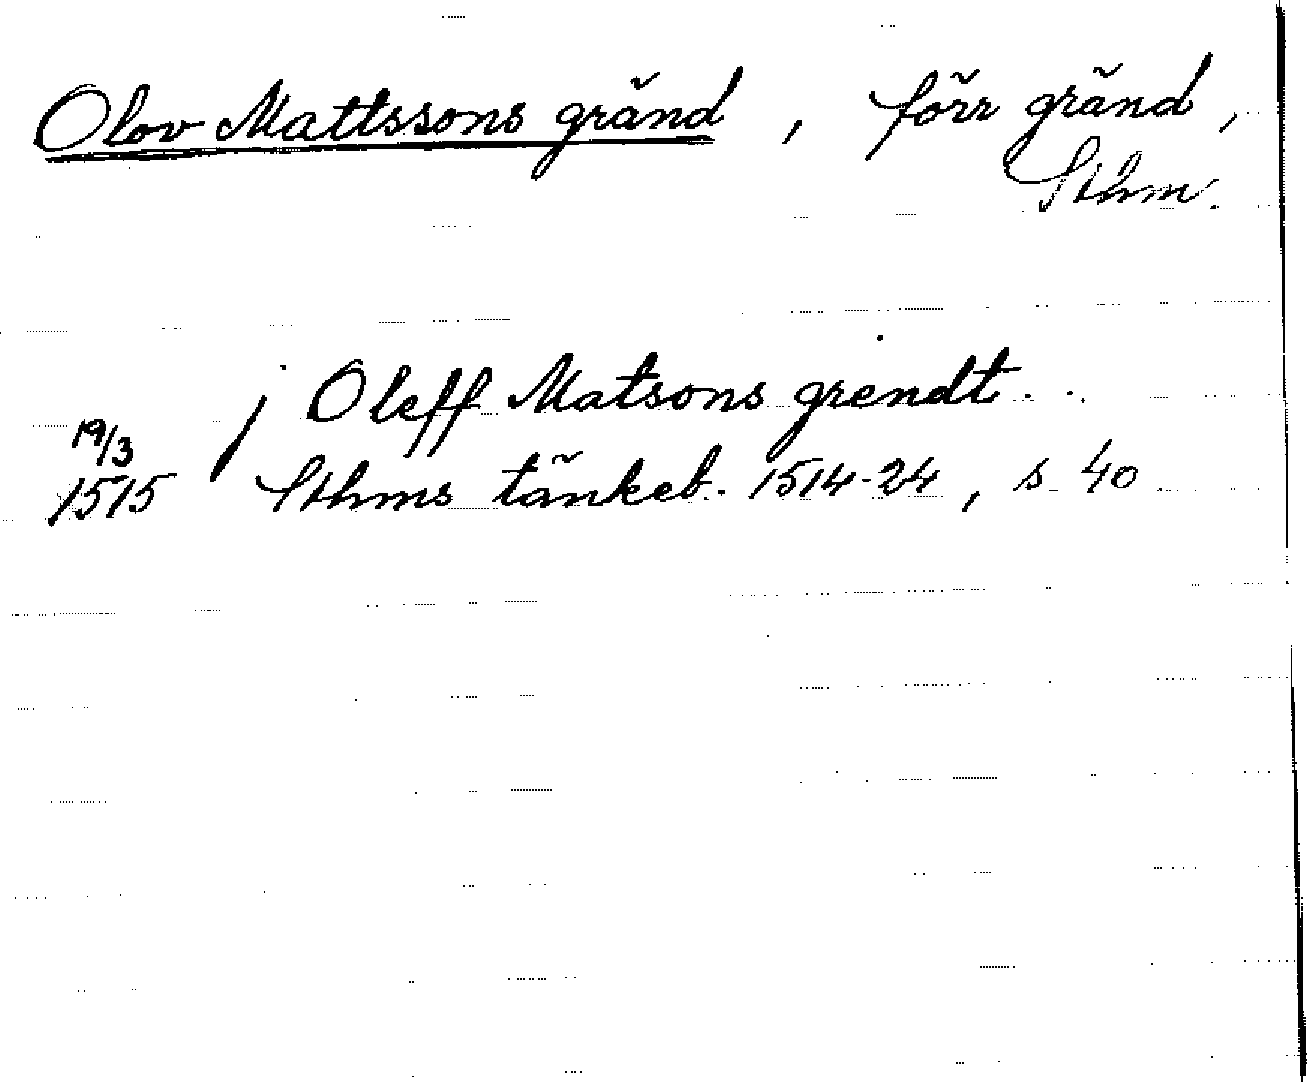 Olov Mattssons gränd, förr gränd,
Sthm.
j Oleff Matsons grendt.
19/3
1515 Sthms tänkeb. 1514-24, s 40